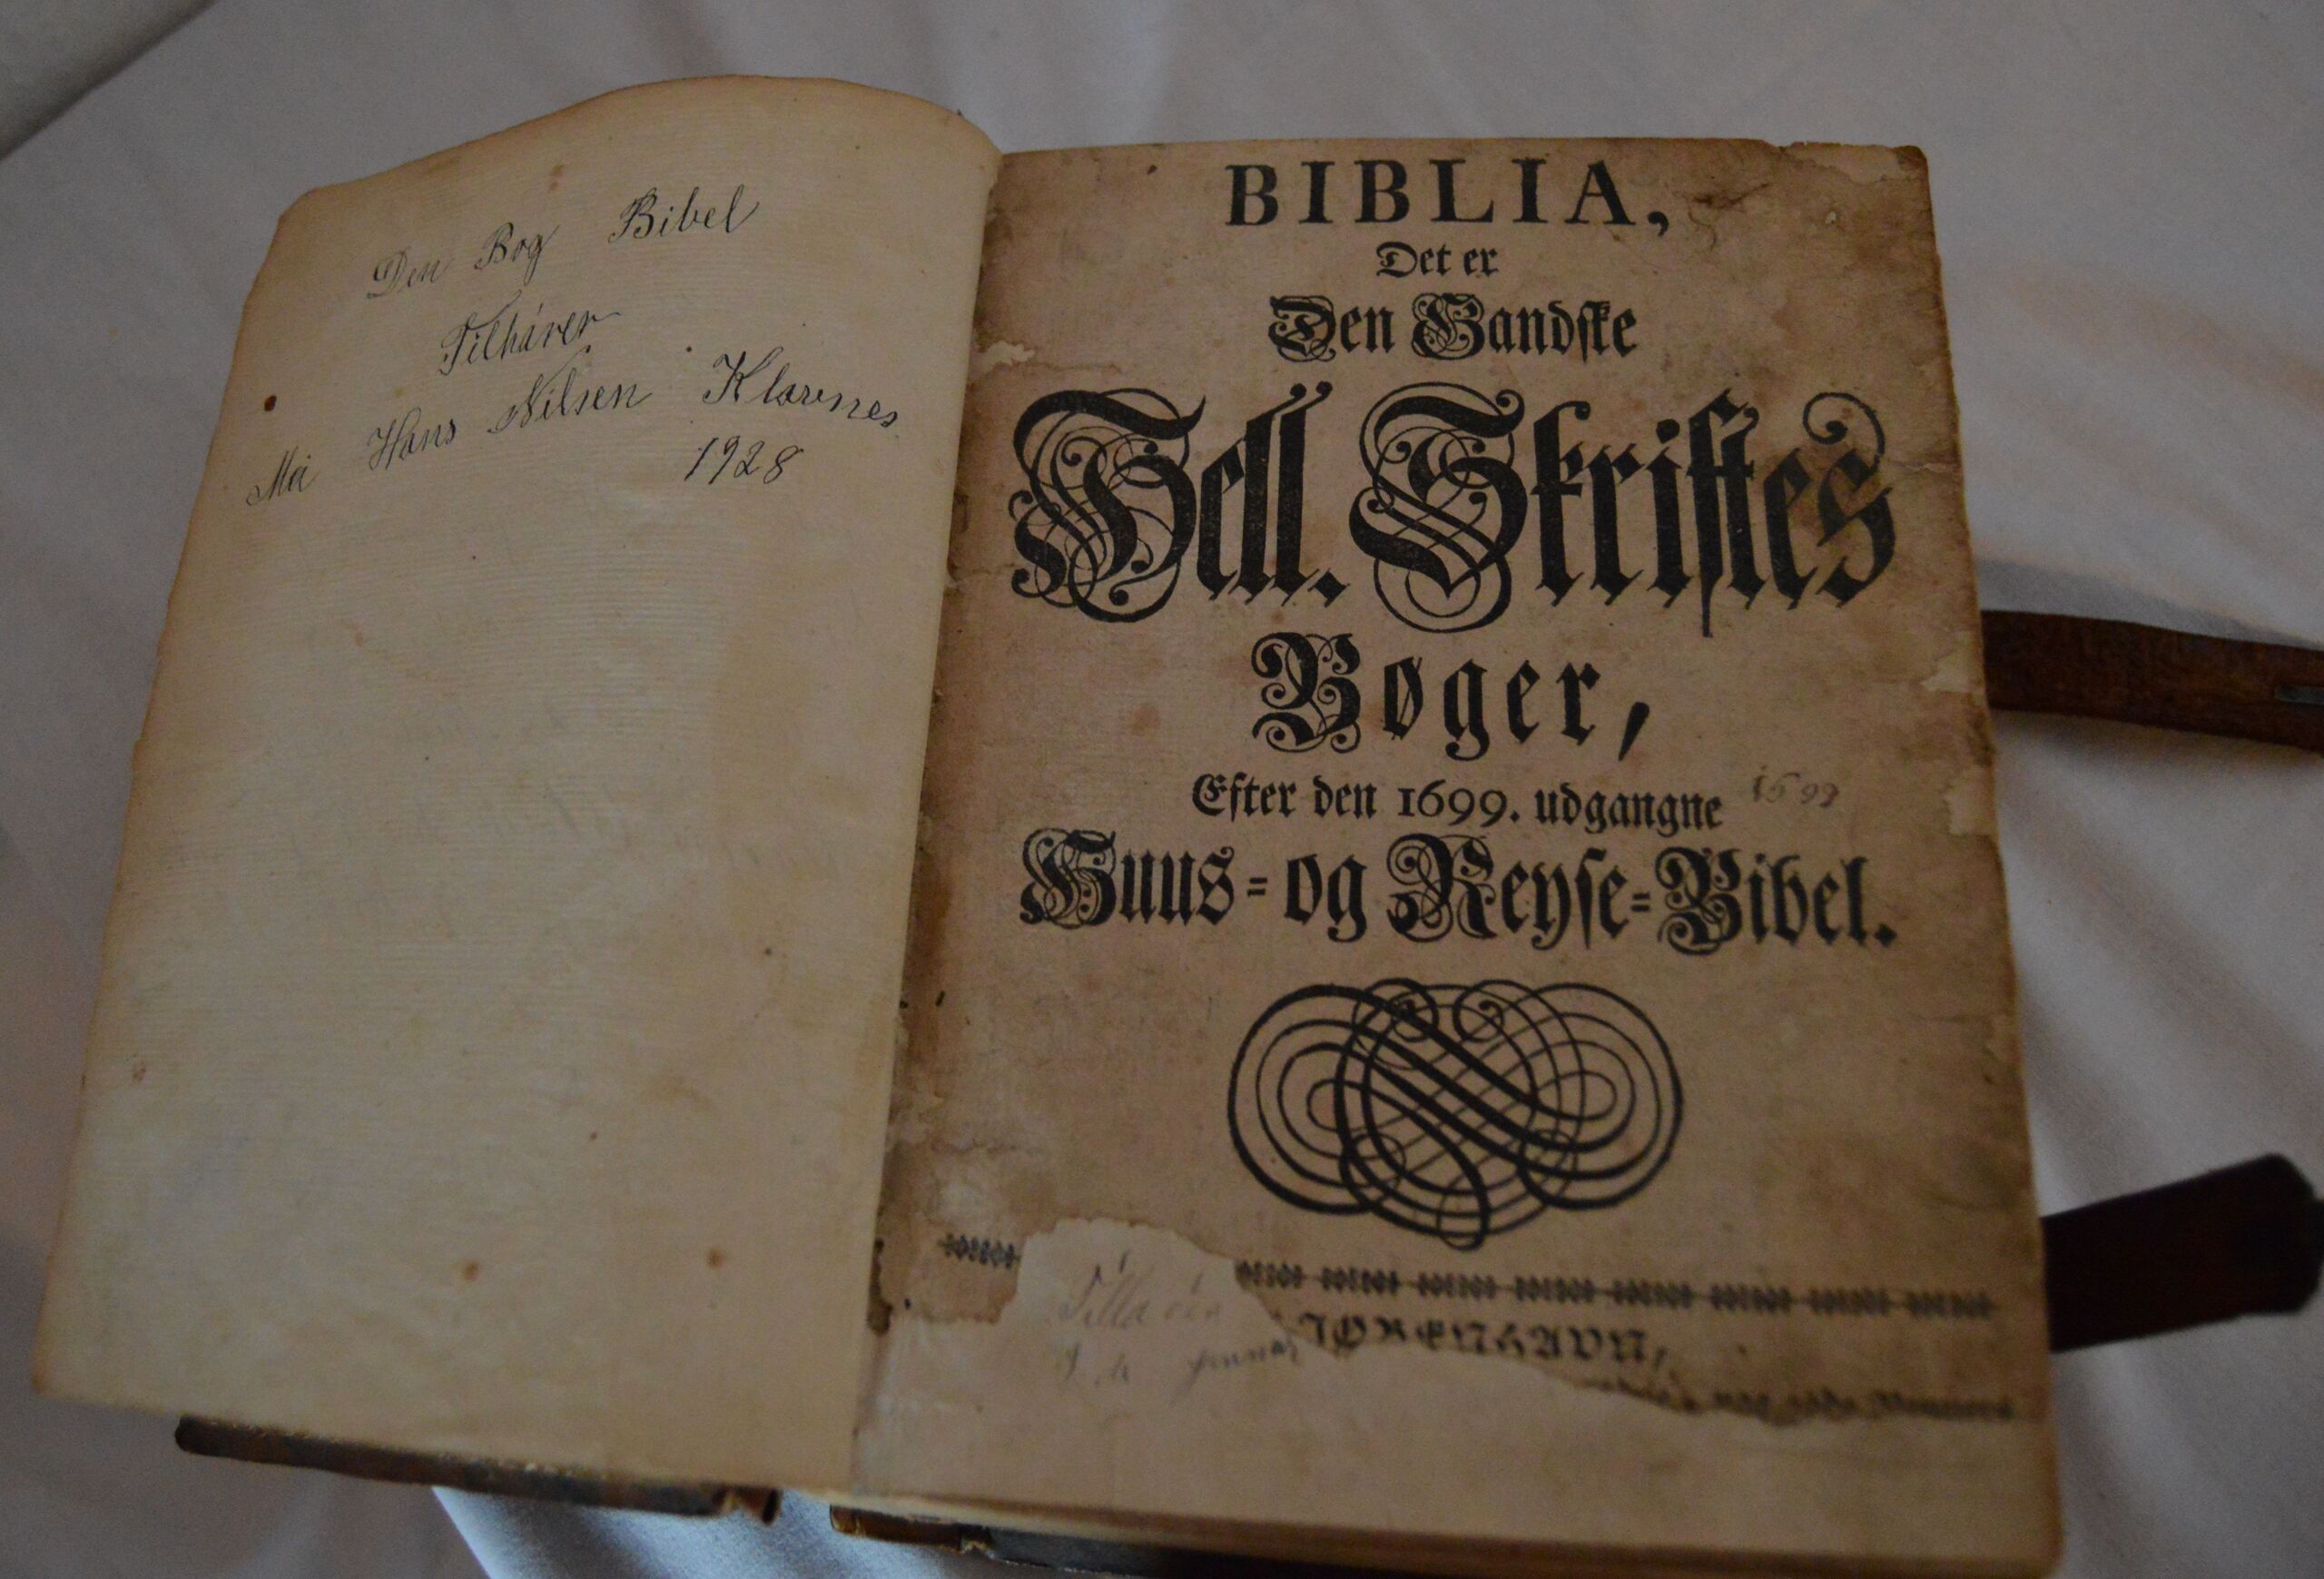 Den Bog Bibel
Tilhører
Mei Hans Nilsen Klarenes
1928
BIBLIA,
Det er
Den Gandske
Hell. Skriftes
Bøger,
Efter den 1699. udgangne 1699
Huus- og Reyse-Bibel.
IØBENHAVN,